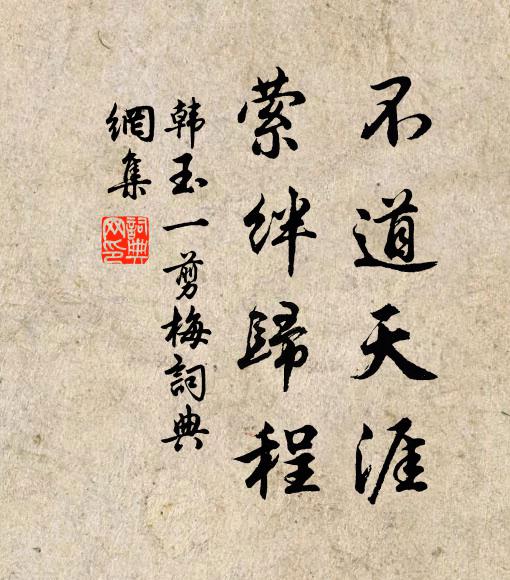 不道天涯
縈絆歸程
韩玉一剪梅詞典
網集
詞典
网印